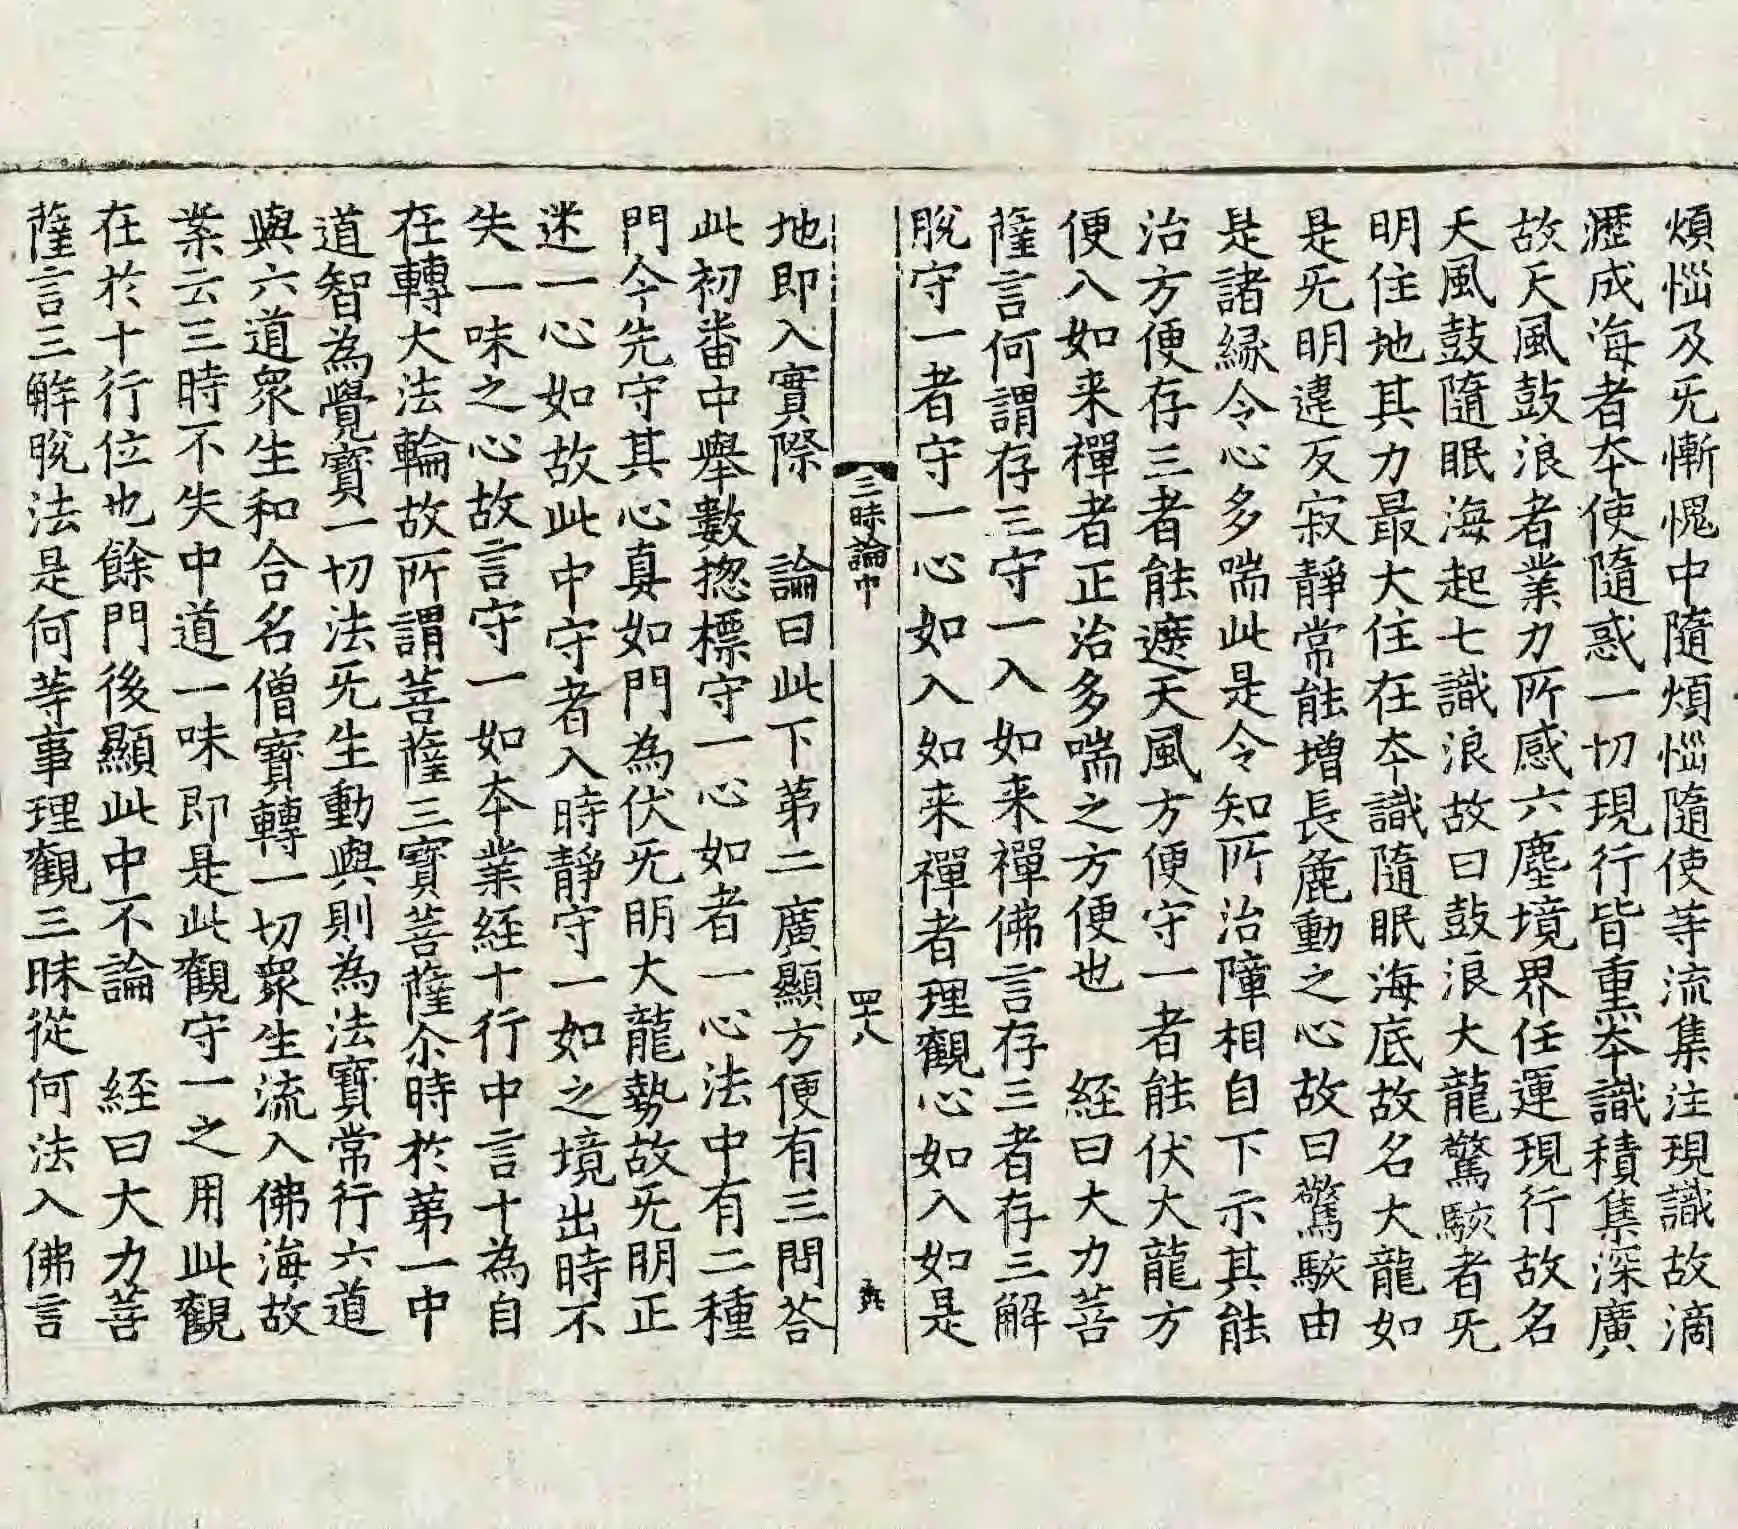 煩惱及旡慚愧中隨煩惱隨使等流集注現識故滴
瀝成海者夲使隨惑一切現行皆熏夲識積集深廣
故天風鼓浪者業力所感六塵境界任運現行故名
天風鼓隨眠海起七識浪故曰鼓浪大龍驚駭者旡
明住地其力最大住在夲識隨眠海底故名大龍如
是旡明違反寂靜常能增長麁動之心故曰驚駭由
是諸縁令心多喘此是令知所治障相自下示其能
治方便存三者能遮天風方便守一者能伏大龍方
便入如来禪者正治多喘之方便也　經曰大力菩
薩言何謂存三守一入如来禪佛言存三者存三解
脫守一者守一心如入如来禪者理觀心如入如是
三昧論中　四十八
地即入實際　論曰此下第二廣顯方便有三問荅
此初番中舉數揔標守一心如者一心法中有二種
門今先守其心真如門為伏旡明大龍勢故旡明正
迷一心如故此中守者入時靜守一如之境出時不
失一味之心故言守一如夲業経十行中言十為自
在轉大法輪故所謂菩薩三寶菩薩尒時於第一中
道智為覺寶一切法旡生動與則為法寶常行六道
與六道衆生和合名僧寶轉一切衆生流入佛海故
業云三時不失中道一味即是此觀守一之用此觀
在於十行位也餘門後顯此中不論　経曰大力菩
薩言三解脫法是何等事理觀三昧從何法入佛言